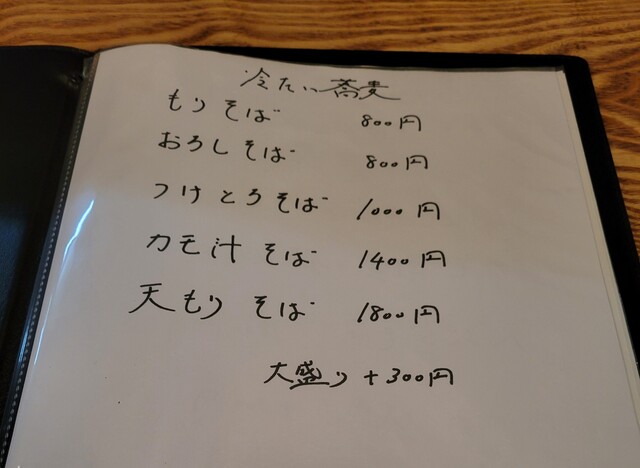 冷たい蕎麦
もりそば 800円
おろしそば 800円
つけとろそば 1000円
カモ汁そば 1400円
天もりそば 1800円
大盛り+300円